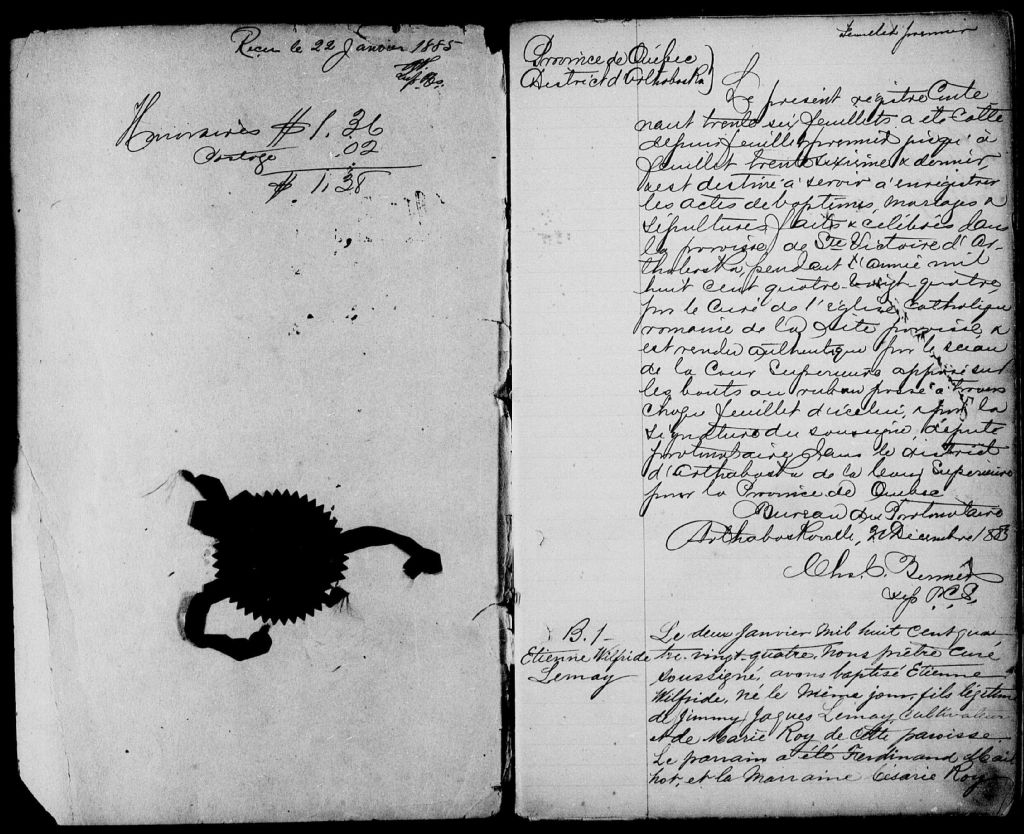 Reçu le 22 Janvier 1885
Honoraires $ 1.36
Postage .02
$ 1.38
Feuillet premier
Province de Québec
District d'Arthabaska
Le présent registre conte
nant trente six feuillets a été Cotté
depuis feuillet premier jusqu'à
feuillet trente sixième & dernier,
est destiné à servir à enregistrer
les actes de baptêmes, mariages &
sépultures faits & célébrés dans
la paroisse de Ste Victoire d'Ar-
thabaska, pendant l'année mil
huit cent quatre-vingt-quatre,
par le Curé de l'église Catholique
romaine de la dite paroisse, &
est rendu authentique par le sceau
de la Cour Supérieure apposé sur
les bouts du ruban passé à travers
chaque feuillet d'icelui, & par la
signature du soussigné, député
protonotaire, dans le district
d'Arthabaska de la Cour Supérieure
pour la Province de Québec
Bureau du Protonotaire
Arthabaskaville, Décembre 1883
Chs. C.
Dep. P.C.S.
B. 1-
Etienne Wilfride
Lemay
Le deux Janvier mil huit cent qua
tre-vingt-quatre, Nous prêtre Curé
soussigné, avons baptisé Etienne
Wilfride, né le même jour, fils légitime
de Jimmy Jaques Lemay, cultivateur
et de Marie Roy de cette paroisse
Le parrain a été Ferdinand Mail
hot, et la Marraine Césarie Roy